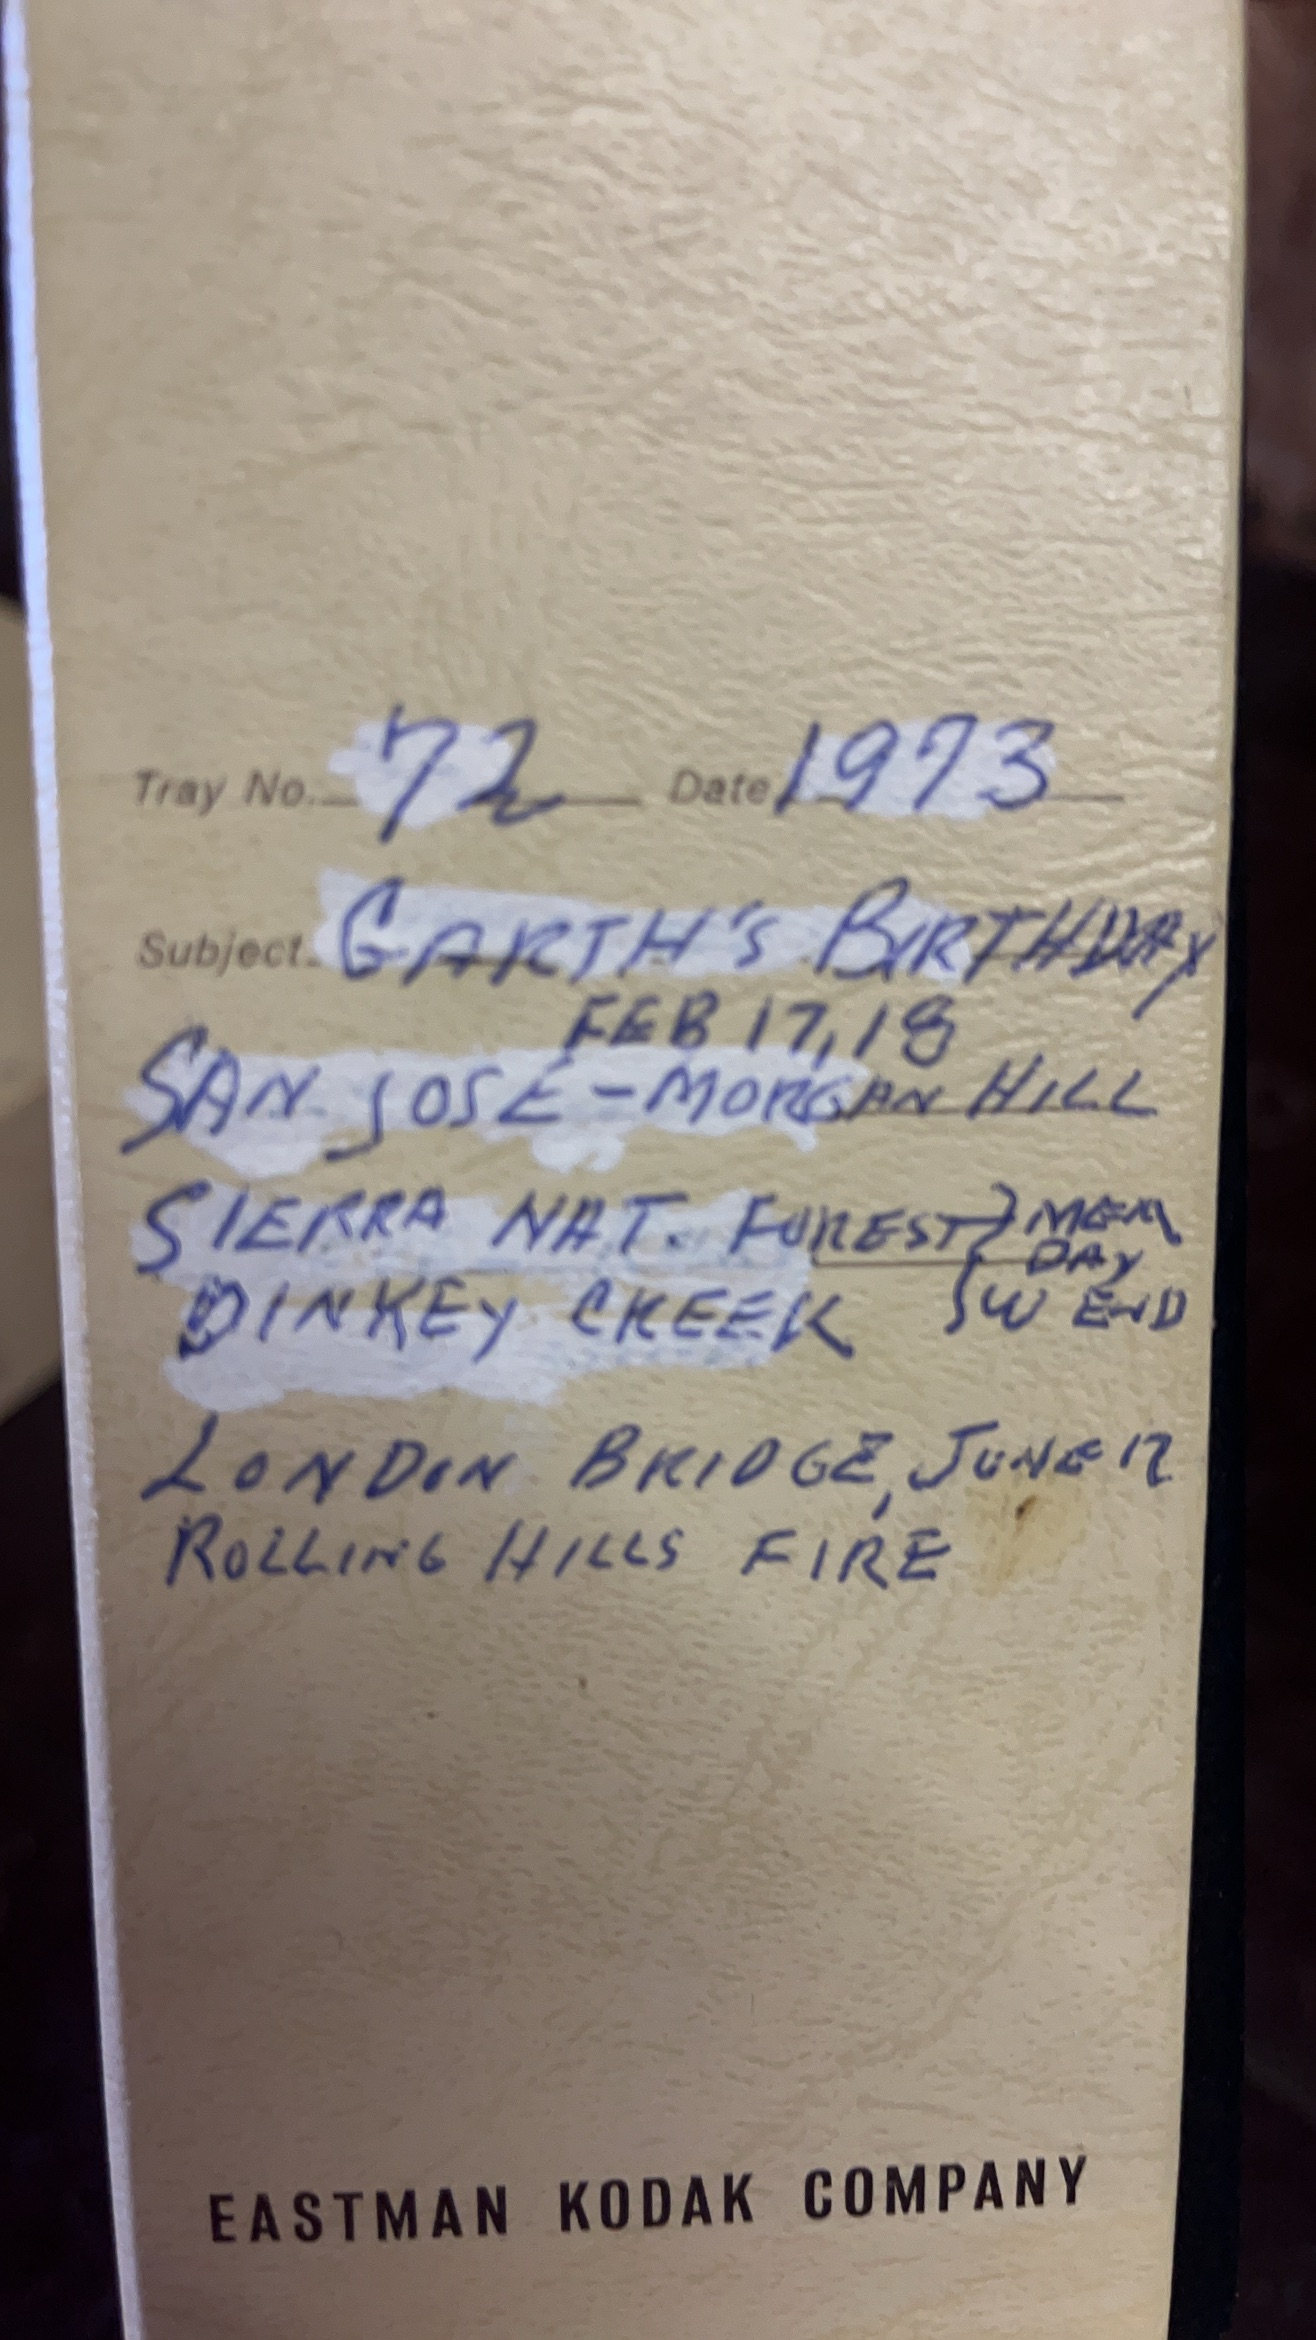 Tray No. 72 Date 1973
Subject. GARTH'S BIRTHDAY
FEB 17, 18
SAN JOSE - MORGAN HILL
SIERRA NAT. FOREST } MEM
DAY
DINKEY CREEK W END
LONDON BRIDGE, JUNE 17
ROLLING HILLS FIRE
EASTMAN KODAK COMPANY